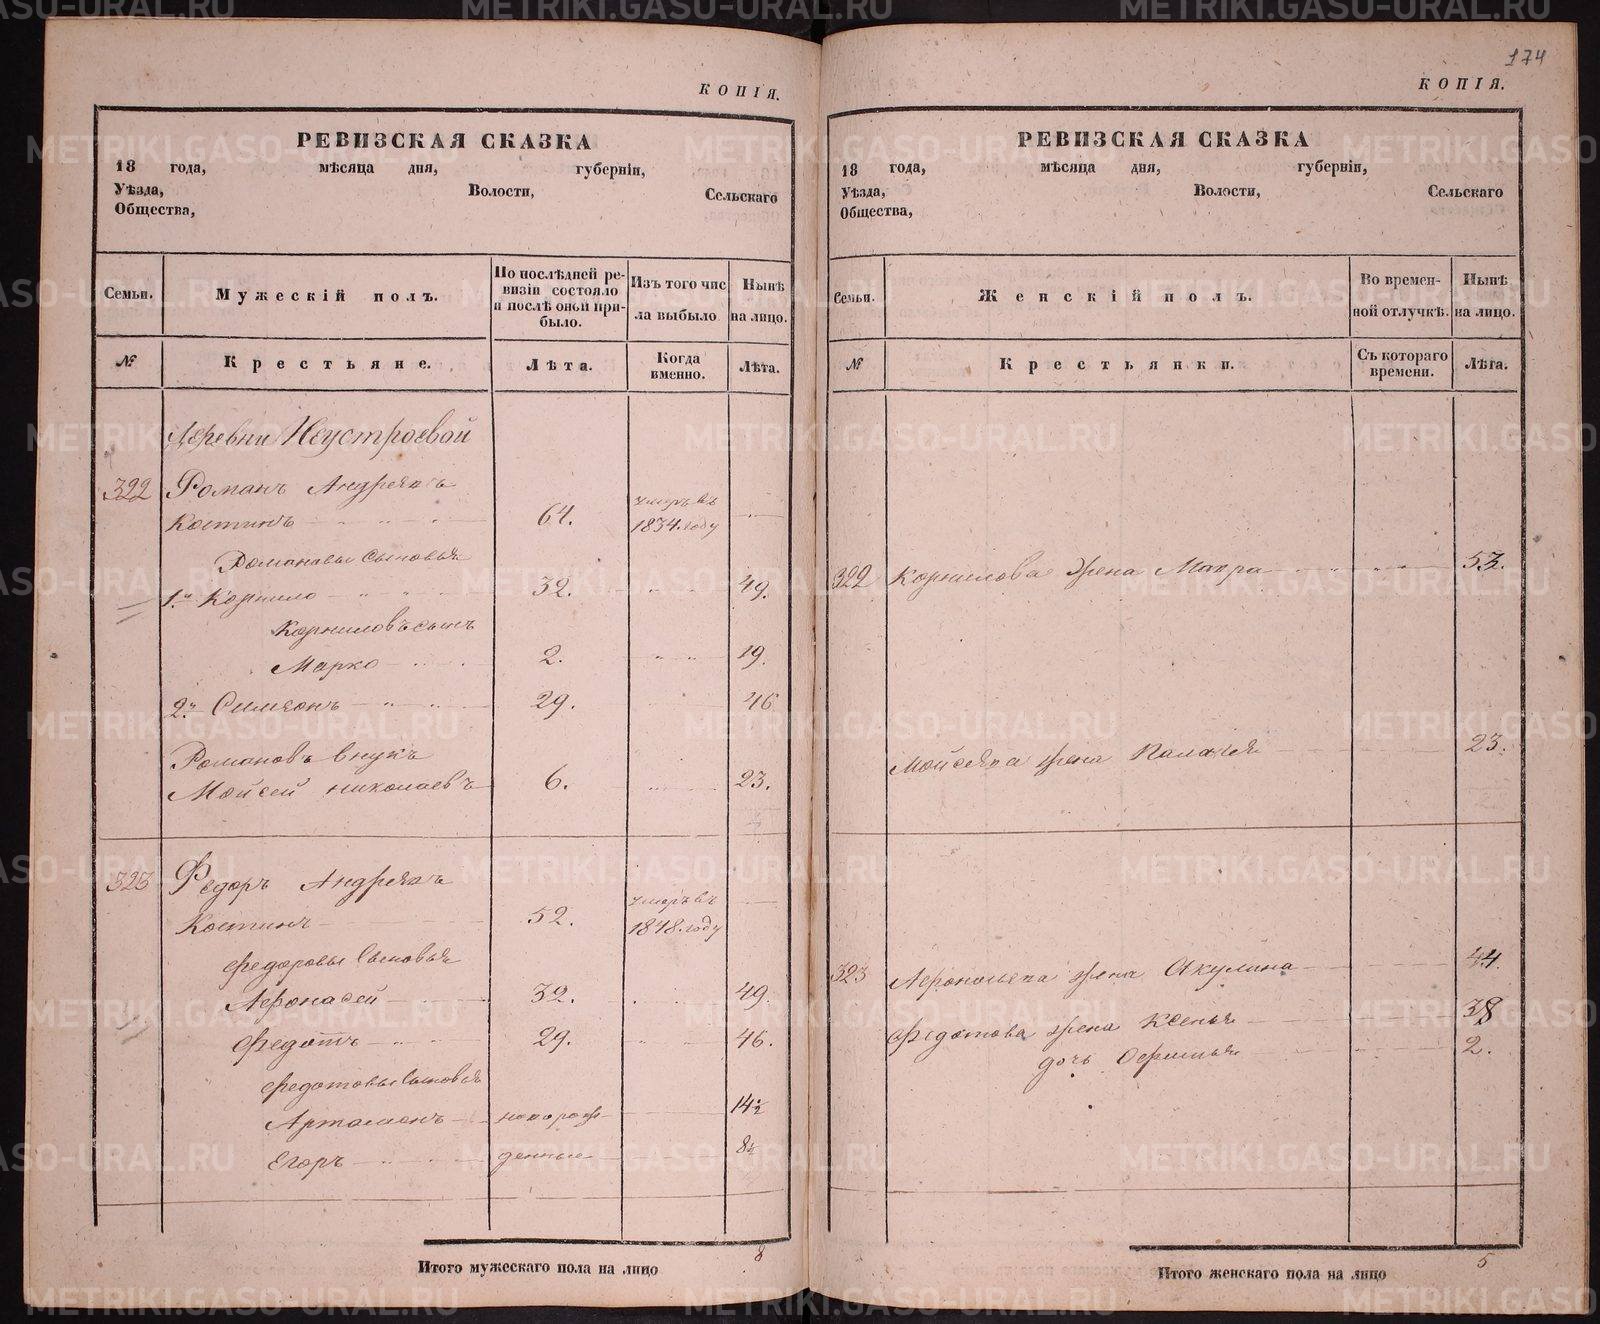 КОПІЯ.
РЕВИЗСКАЯ СКАЗКА
18 года, мѣсяца дня, губерніи,
Уѣзда, Волости, Сельскаго
Общества,
Семьи. Мужескій полъ. По послѣдней ревизіи состояло и послѣ оной прибыло. Изъ того числа выбыло Нынѣ на лицо.
№ Крестьяне. Лѣта. Когда именно. Лѣта.
Деревни Неустроевой
322 Романъ Андреевъ
Костинъ 64. умеръ въ 1834 году
Романовы сыновья
1й Корнило 32. 49.
Корниловъ сынъ
Марко 2. 19.
2й Симеонъ 29. 46
Романовъ внукъ
Мойсей Николаевъ 6. 23.
323 Федоръ Андреевъ
Костинъ 52. умеръ въ 1848. году
Федоровы сыновья
Афонасей 32. 49.
Федотъ 29. 46.
Федотовы сыновья
Артамонъ новорож- 14½
Егоръ денные 8½
Итого мужескаго пола на лицо 8
174
КОПІЯ.
РЕВИЗСКАЯ СКАЗКА
18 года, мѣсяца дня, губерніи,
Уѣзда, Волости, Сельскаго
Общества,
Семьи. Женскій полъ. Во временной отлучкѣ. Нынѣ на лицо.
№ Крестьянки. Съ котораго времени. Лѣта.
322 Корнилова жена Мавра 53.
Мойсеева жена Палагея 23.
323 Афонасьева жена Акулина 44.
Федотова жена Ксенья 38
дочь Офимья 2.
Итого женскаго пола на лицо 5
METRIKI.GASO-URAL.RU